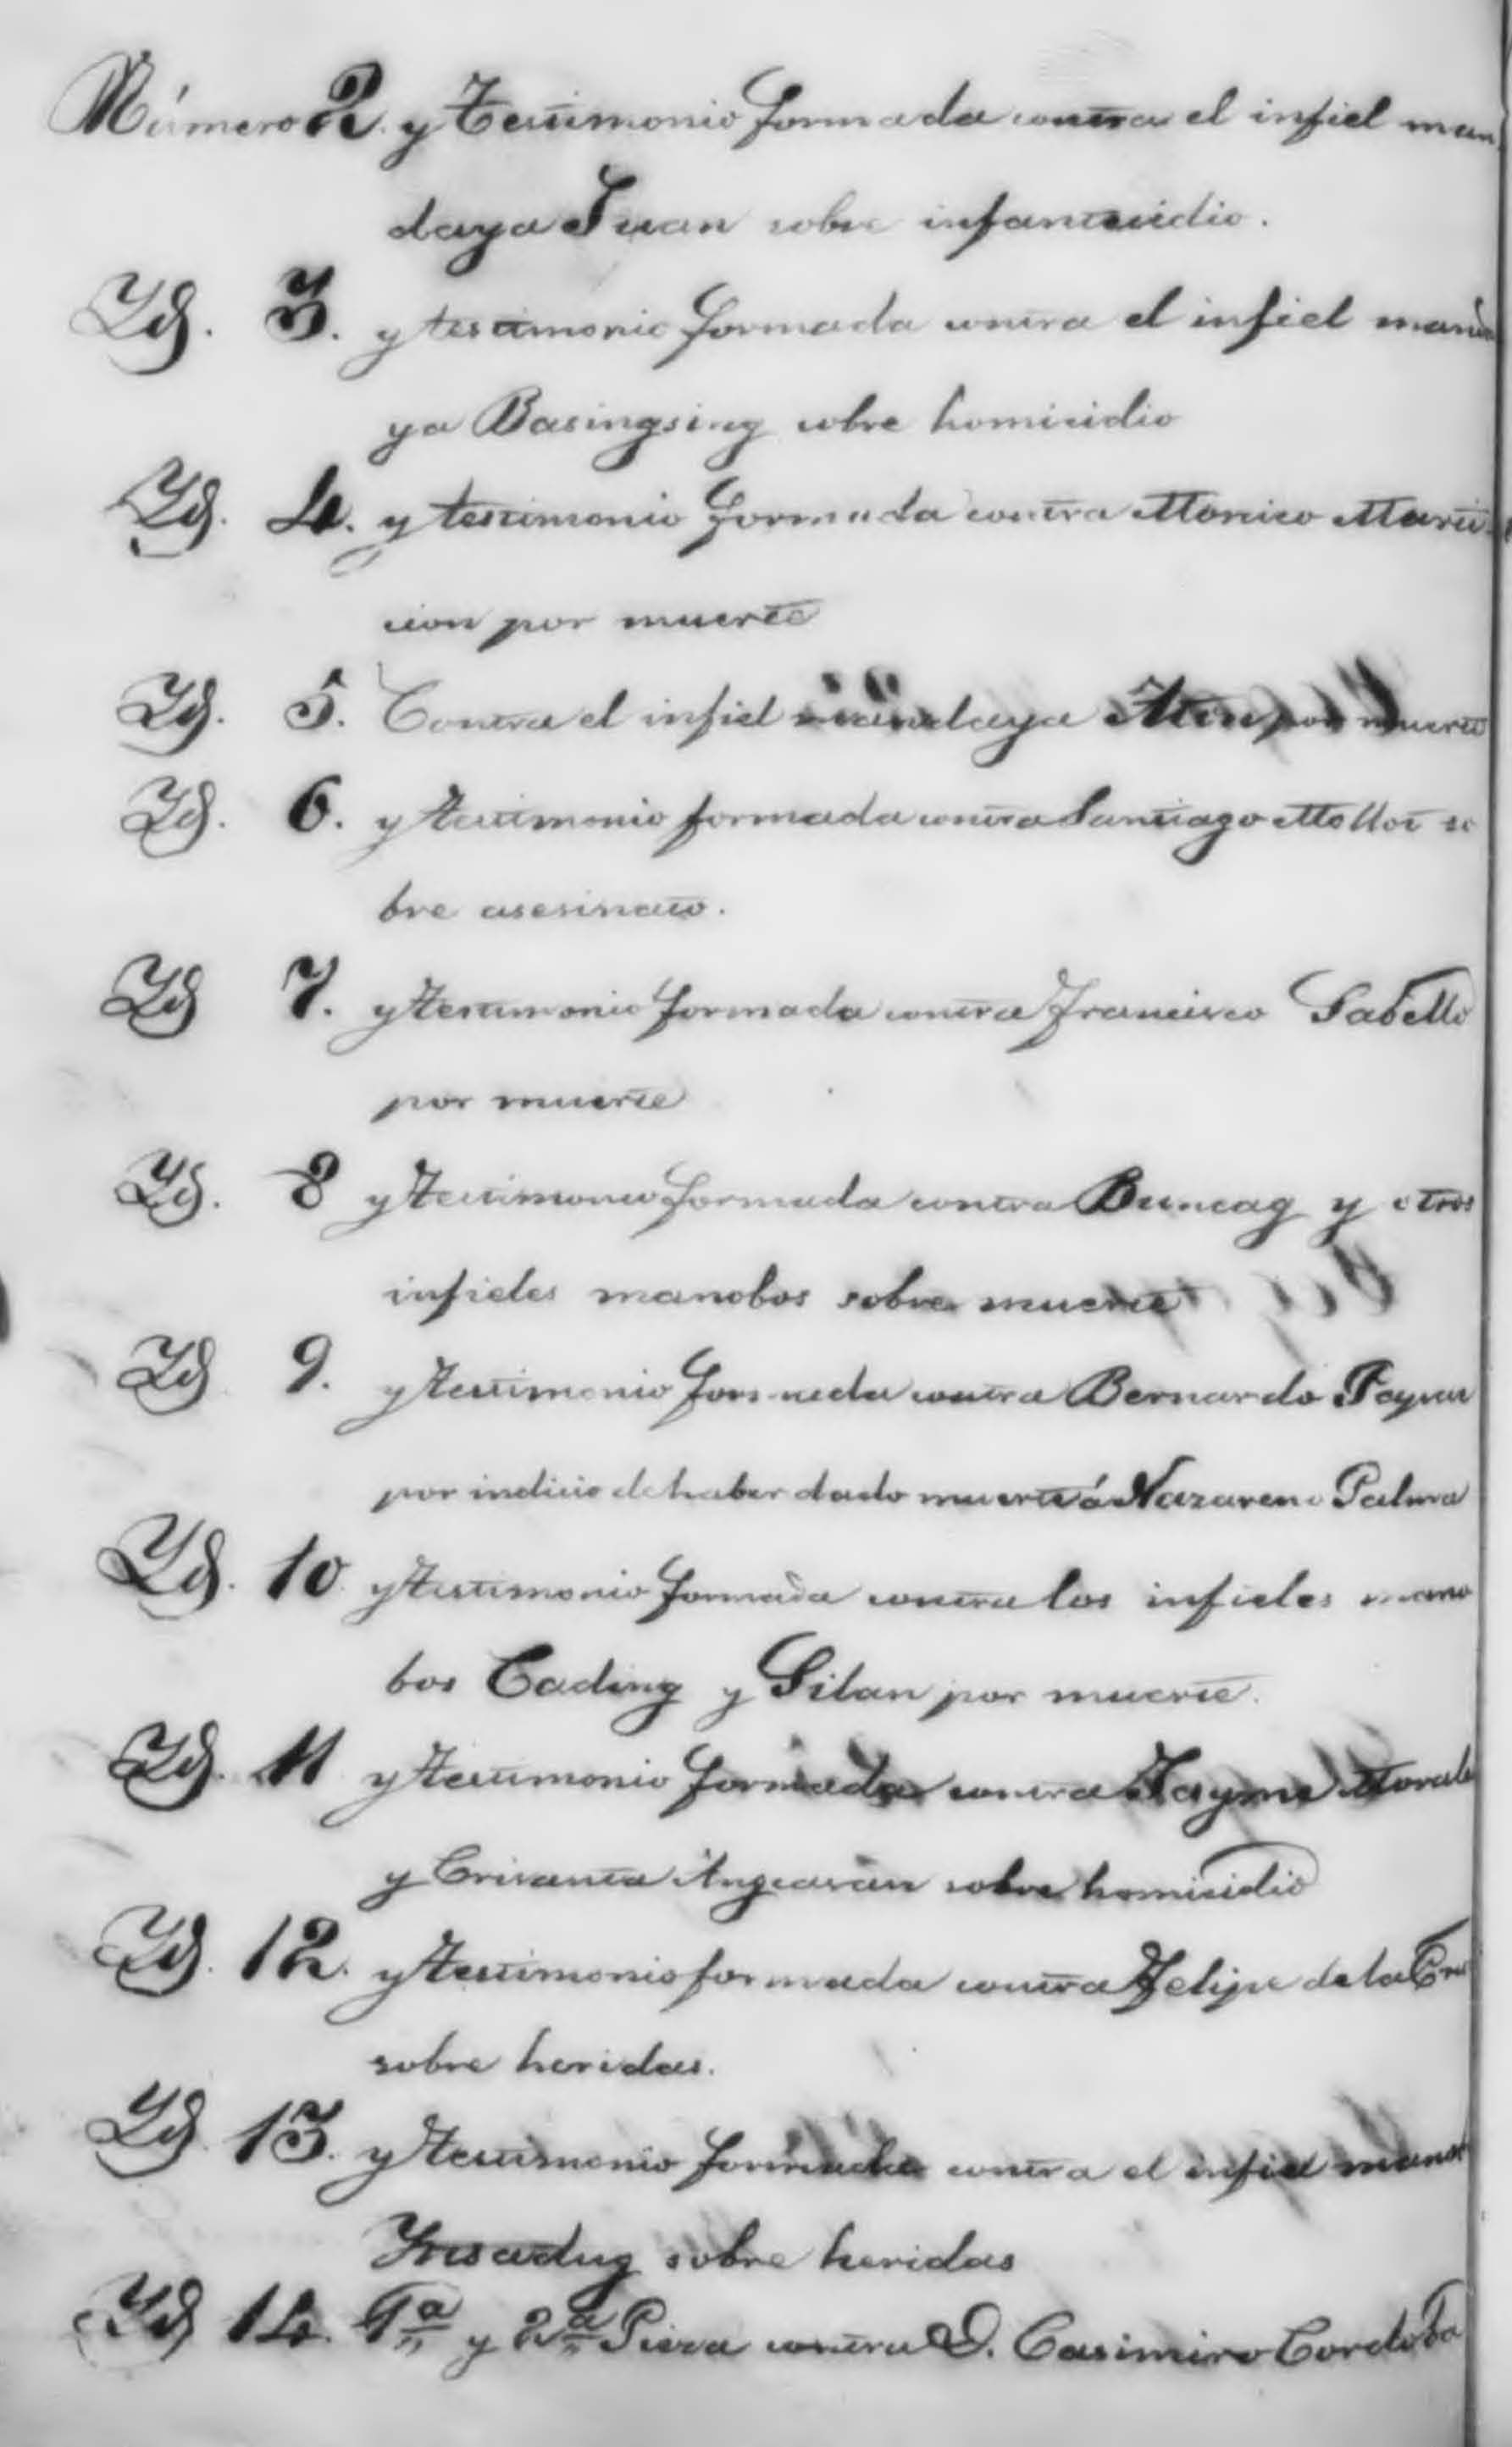 Número 2. y testimonio formada contra el infiel man
daya Juan sobre infanticidio.
Yd. 3. y testimonio formada contra el infiel manda
ya Basingsing sobre homicidio
Yd. 4. y testimonio formada contra Monico
cion por muerte
Yd. 5. Contra el infiel mandaya por muerte
Yd. 6. y testimonio formada contra Santiago so
bre asesinato.
Yd 7. y testimonio formada contra Francisco
por muerte
Yd. 8 y testimonio formada contra Buncag y otros
infieles manobos sobre muerte
Yd 9. y testimonio formada contra Bernardo
por indicio de haber dado muerte á Nazareno Palma
Yd. 10 y testimonio formada contra los infieles mano
bos Cading y Gilan por muerte.
Yd. 11 y testimonio formada contra Jayme Morale
y sobre homicidio
Yd. 12. y testimonio formada contra Felipe de la Cruz
sobre heridas.
Yd 13. y testimonio formada contra el infiel
sobre heridas
Yd 14. 1ª y 2ª Pieza contra D. Casimiro Cordoba